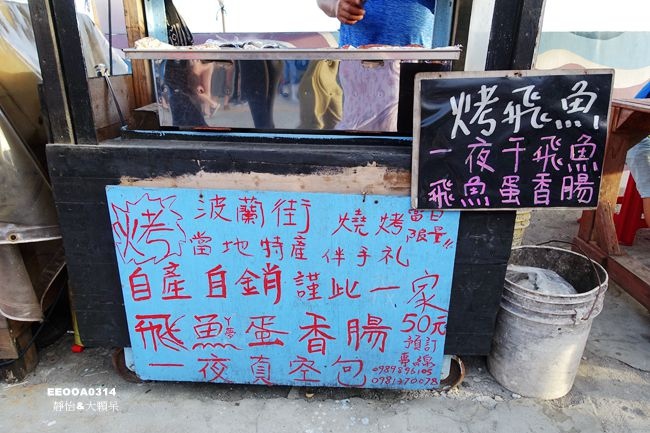 烤飛魚
一夜干飛魚
飛魚蛋香腸
烤
波蘭街 燒烤 當日限量!!
當地特產 伴手礼
自產自銷 謹此一家
飛魚蛋香腸 50元
一夜真空包 預訂專線
0981370078
EEOOA0314
靜怡&大顆呆